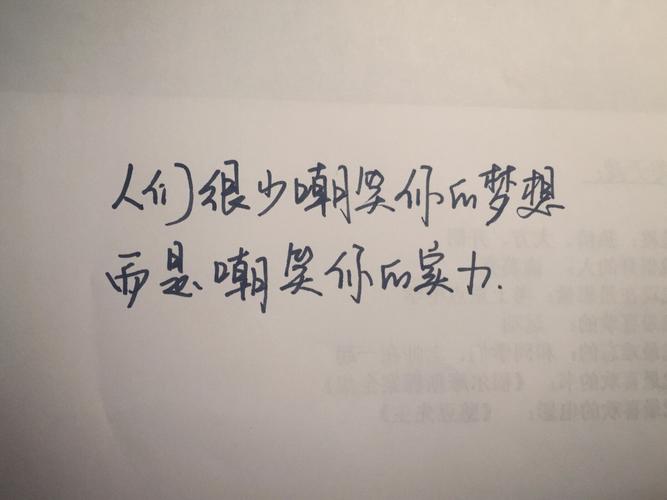 人们很少嘲笑你的梦想
而是嘲笑你的实力.